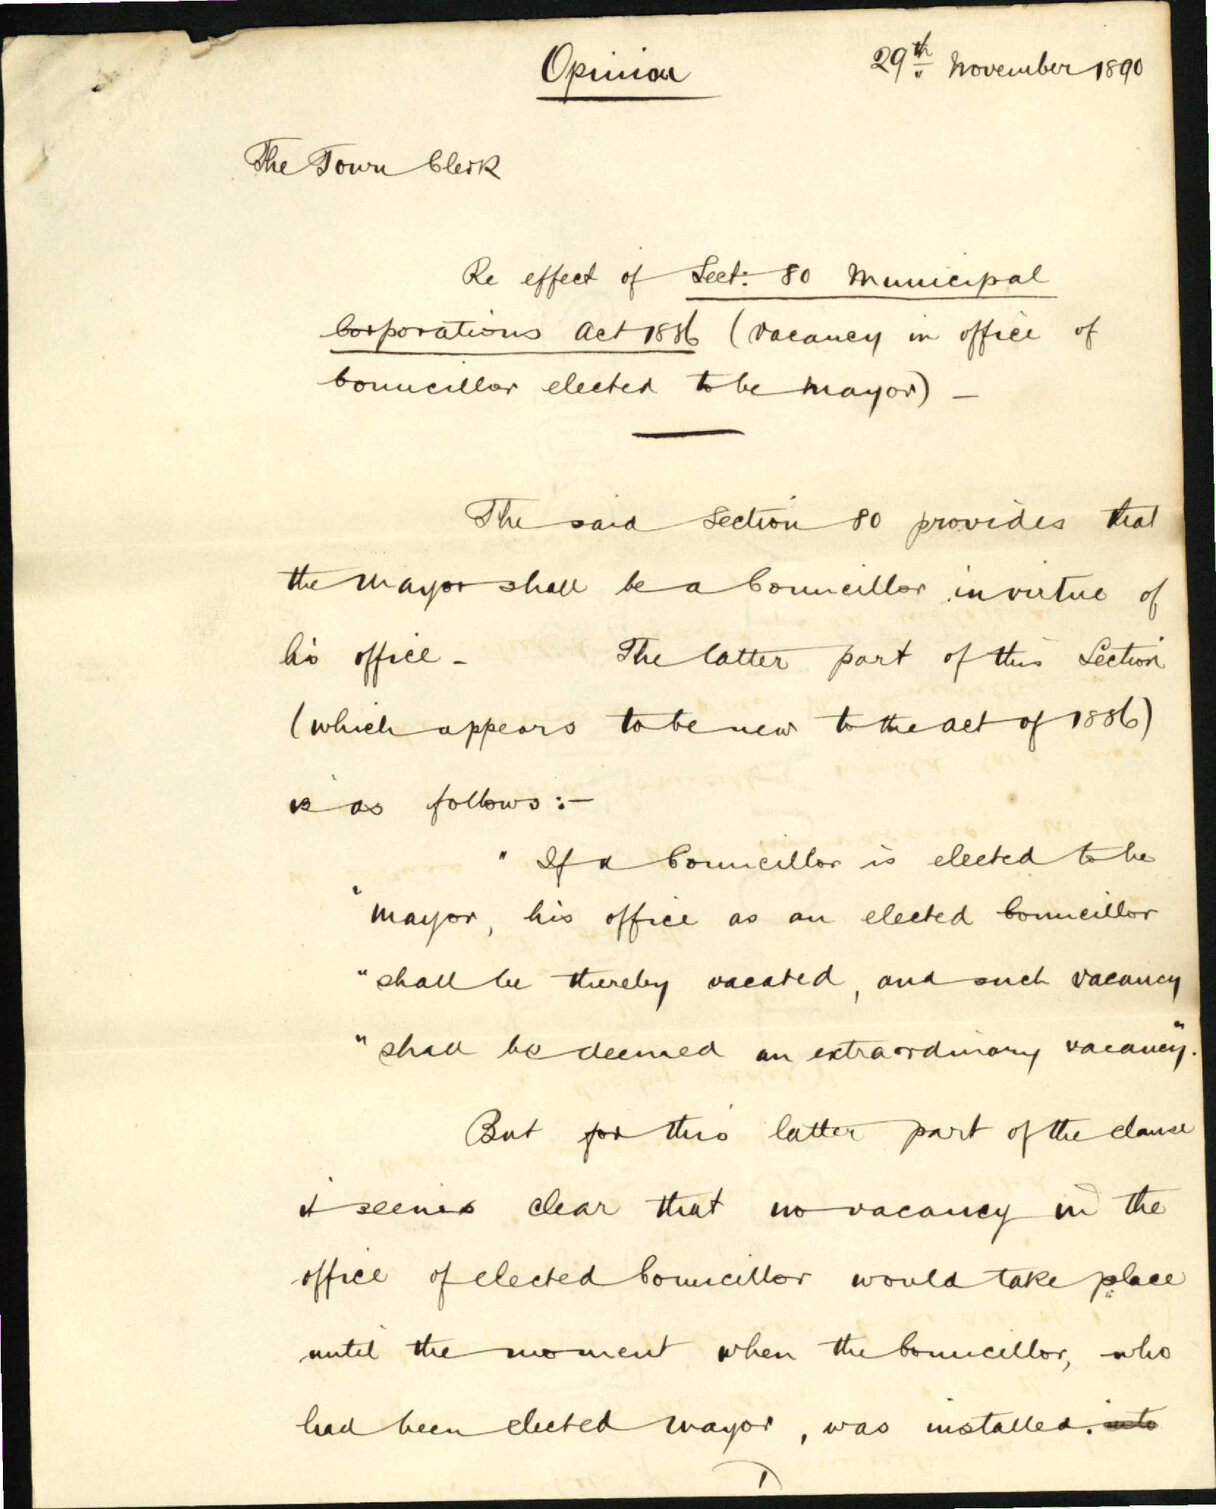 Opinion
29th November 1890
The Town Clerk
Re effect of Sect: 80 Municipal
Corporations Act 1886 (vacancy in office of
Councillor elected to be Mayor) —
The said Section 80 provides that
the Mayor shall be a Councillor in virtue of
his office - The latter part of this Section
(which appears to be new to the Act of 1886)
is as follows:—
" If a Councillor is elected to be
" Mayor, his office as an elected Councillor
" shall be thereby vacated, and such vacancy
" shall be deemed an extraordinary vacancy".
But for this latter part of the clause
it seems clear that no vacancy in the
office of elected Councillor would take place
until the moment when the Councillor, who
had been elected Mayor, was installed. into
1)